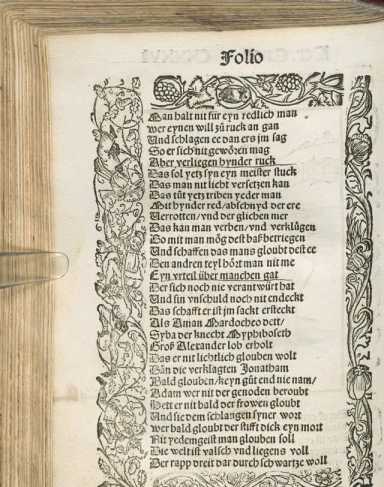 Folio
Man halt nit für eyn redlich man
wer eynen will zů ruck an gan
Und schlagen ee dan ers jm sag
So er sich nit geweren mag
Aber verliegen hynder ruck
Das sol yetz syn eyn meister stuck
Das man nit licht versetzen kan
Das tůt yetz triben yeder man
Mit hynder red/abschnyd der ere
Verrotten/vnd der glichen mer
Das kan man verben/vnd verklůgen
Do mit man mög dest baß betriegen
Und schaffen das mans gloubt dest ee
Den andren teyl hört man nit me
Eyn vrteil über manchen gat
Der sich noch nie verantwürt hat
Und sin vnschuld noch nit endeckt
Das schafft er ist jm sackt ersteckt
Als Aman Mardocheo dett/
Syba der knecht Myphiboseth
Groß Alexander lob erholt
Das er nit liechtlich glouben wolt
Dan die verklagten Jonatham
Bald glouben/keyn gůt end nie nam/
Adam wer nit der genoden beroubt
Hett er nit bald der frowen gloubt
Und sie dem schlangen syner wort
wer bald gloubt der stifft dick eyn mort
Nit yedem geist man glouben soll
Die welt ist valsch vnd liegens voll
Der rapp dreit dar durch schwartze woll